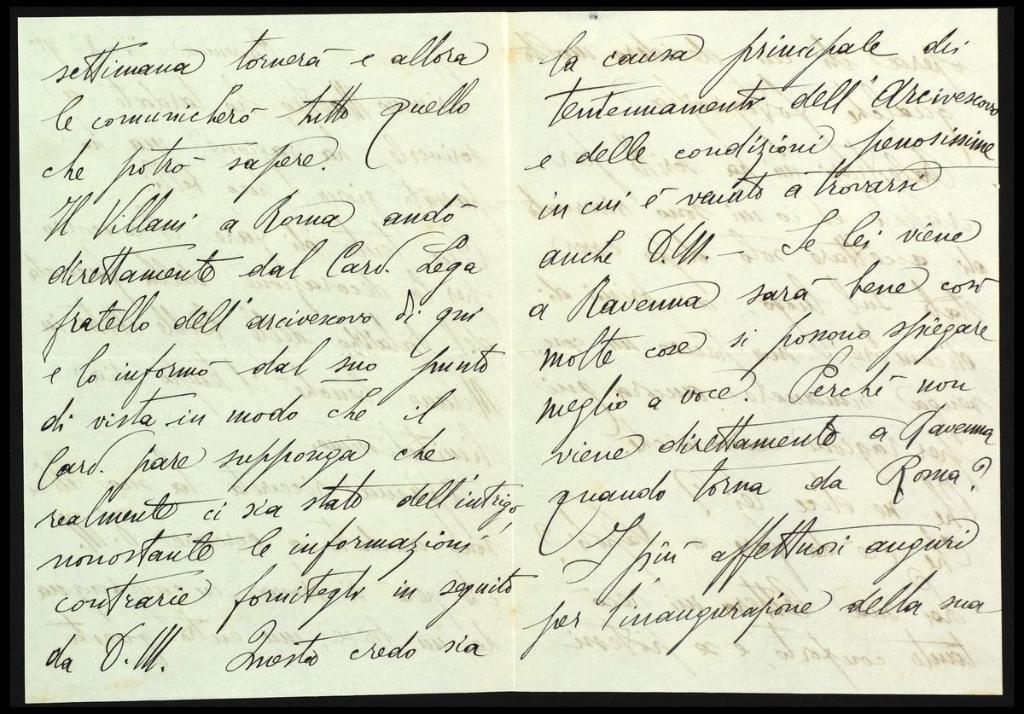 settimana tornerà e allora
le comunicherò tutto quello
che potrò sapere.
Il Villani a Roma andò
direttamente dal Card. Lega
fratello dell'arcivescovo di qui
e lo informò dal suo punto
di vista in modo che il
Card. pare supponga che
realmente ci sia stato dell'intrigo,
nonostante le informazioni
contrarie fornitegli in seguito
da D. M. Questo credo sia
la causa principale dei
tentennamenti dell'Arcivescovo
e delle condizioni penosissime
in cui è venuto a trovarsi
anche D. M. – Se lei viene
a Ravenna sarà bene così
molte cose si possono spiegare
meglio a voce. Perchè non
viene direttamente a Ravenna
quando torna da Roma?
I più affettuosi auguri
per l'inaugurazione della sua